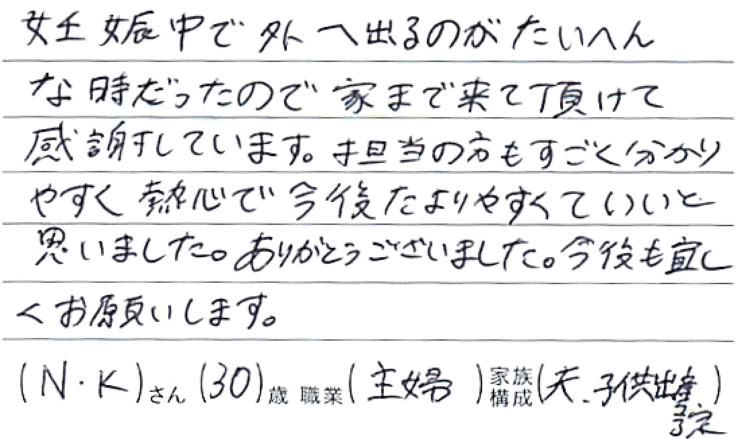 妊娠中で外へ出るのがたいへん
な時だったので家まで来て頂けて
感謝しています。担当の方もすごく分かり
やすく熱心で今後たよりやすくていいと
思いました。ありがとうございました。今後も宜し
くお願いします。
(N・K)さん(30)歳 職業(主婦)家族構成(夫、子供出産予定)